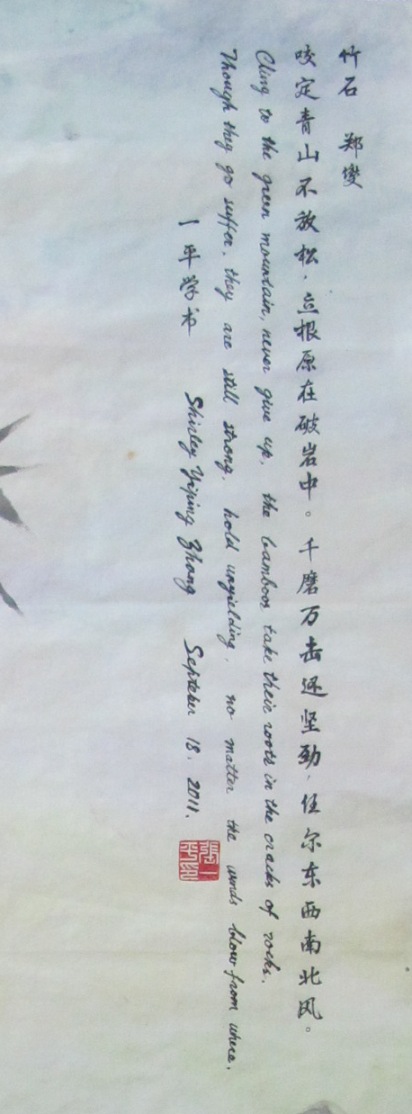 竹石 郑燮
咬定青山不放松，立根原在破岩中。千磨万击还坚劲，任尔东西南北风。
Cling to the green mountain, never give up, the bamboos take their roots in the cracks of rocks.
Though they go suffer, they are still strong, hold unyielding, no matter the winds blow from where.
一平学书 Shirley Yiping Zhang Septeber 18, 2011.
張一平印